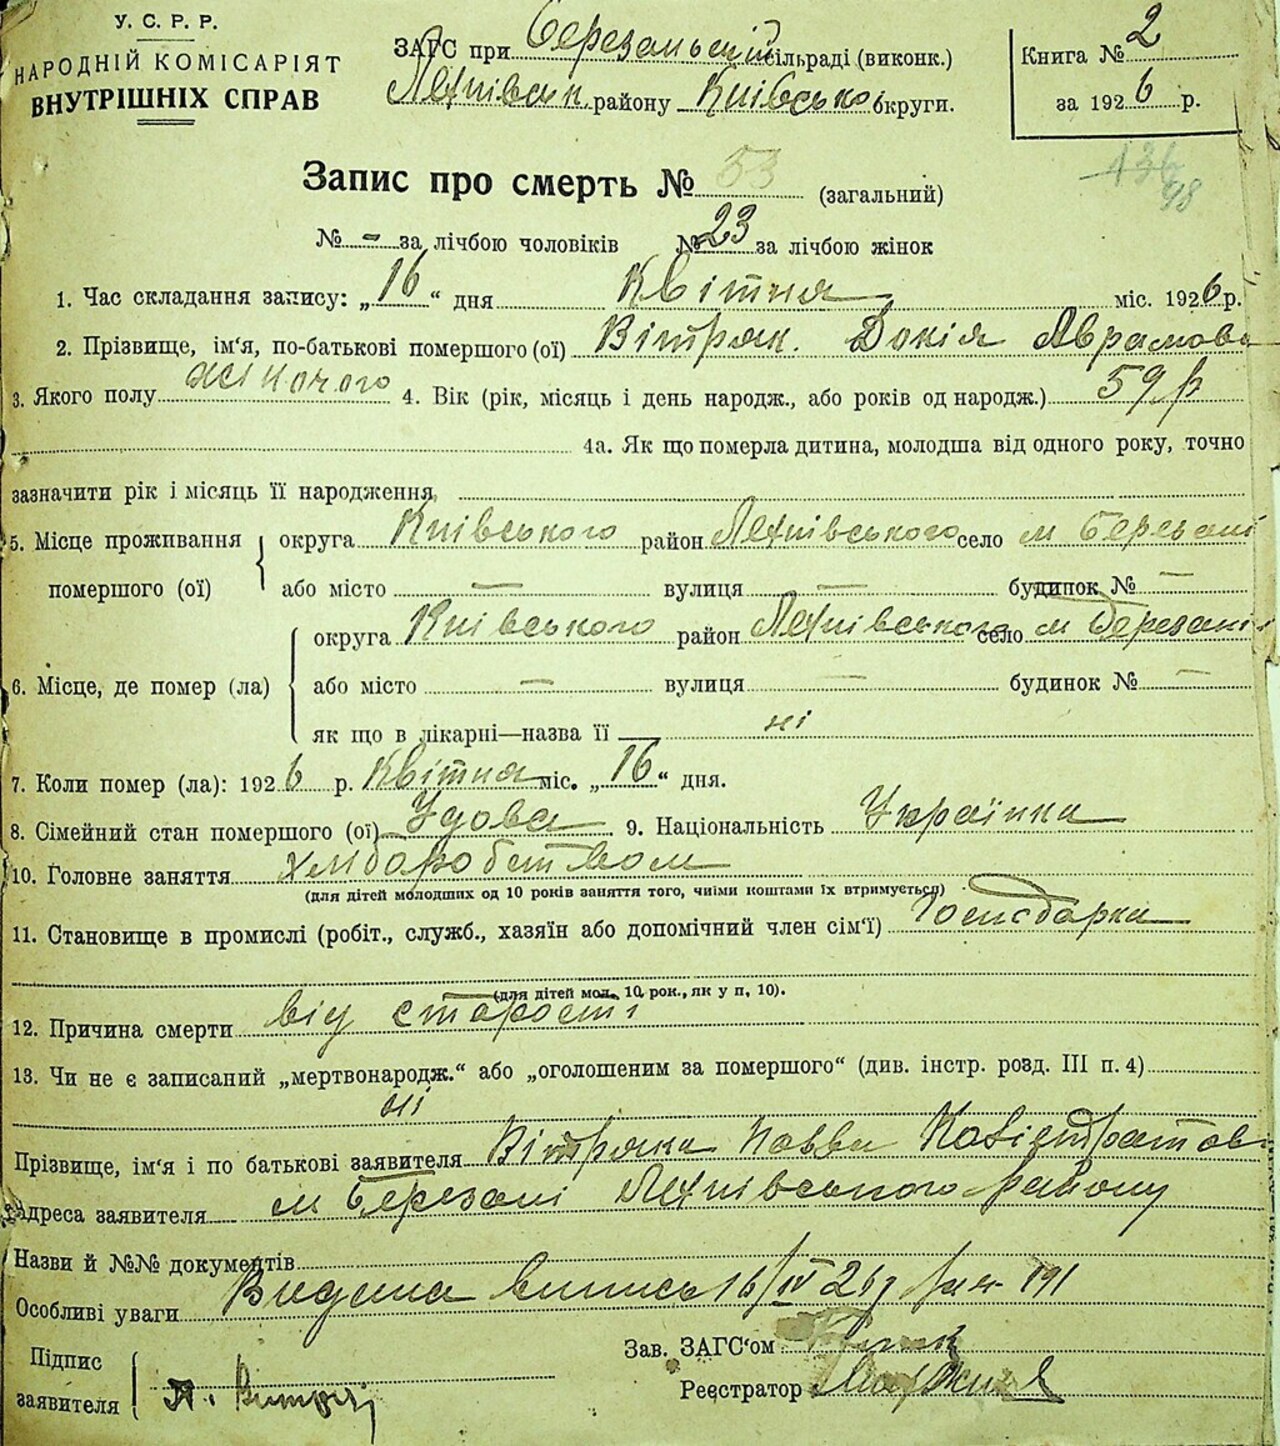 У. С. Р. Р.
НАРОДНІЙ КОМІСАРІЯТ
ВНУТРІШНІХ СПРАВ
ЗАГС при Березанській сільраді (виконк.)
району Київської округи.
Книга № 2
за 1926 р.
Запис про смерть № 53 (загальний)
136
98
№ - за лічбою чоловіків № 23 за лічбою жінок
1. Час складання запису: „16“ дня Квітня міс. 1926 р.
2. Прізвище, ім'я, по-батькові помершого (ої) Вітряк. Докія Аврамова
3. Якого полу жіночого 4. Вік (рік, місяць і день народж., або років од народж.) 59 р
4а. Як що померла дитина, молодша від одного року, точно
зазначити рік і місяць її народження
5. Місце проживання помершого (ої) округа Київського район село м Березані
або місто — вулиця — будинок № —
6. Місце, де помер (ла) округа Київського район село м Березані
або місто — вулиця — будинок № —
як що в лікарні—назва її ні
7. Коли помер (ла): 1926 р. Квітня міс. „16“ дня.
8. Сімейний стан помершого (ої) Удова 9. Національність Українка
10. Головне заняття хліборобством
(для дітей молодших од 10 років заняття того, чиїми коштами їх втримується)
11. Становище в промислі (робіт., служб., хазяїн або допомічний член сім'ї) Господарка
(для дітей мол. 10 рок., як у п. 10).
12. Причина смерти від старості
13. Чи не є записаний „мертвонародж.“ або „оголошеним за помершого“ (див. інстр. розд. III п. 4)
ні
Прізвище, ім'я і по батькові заявителя Вітряка
Адреса заявителя м Березані району
Назви й №№ документів
Особливі уваги Видана випись 16/IV 26 р 191
Підпис заявителя
Зав. ЗАГС'ом
Реєстратор